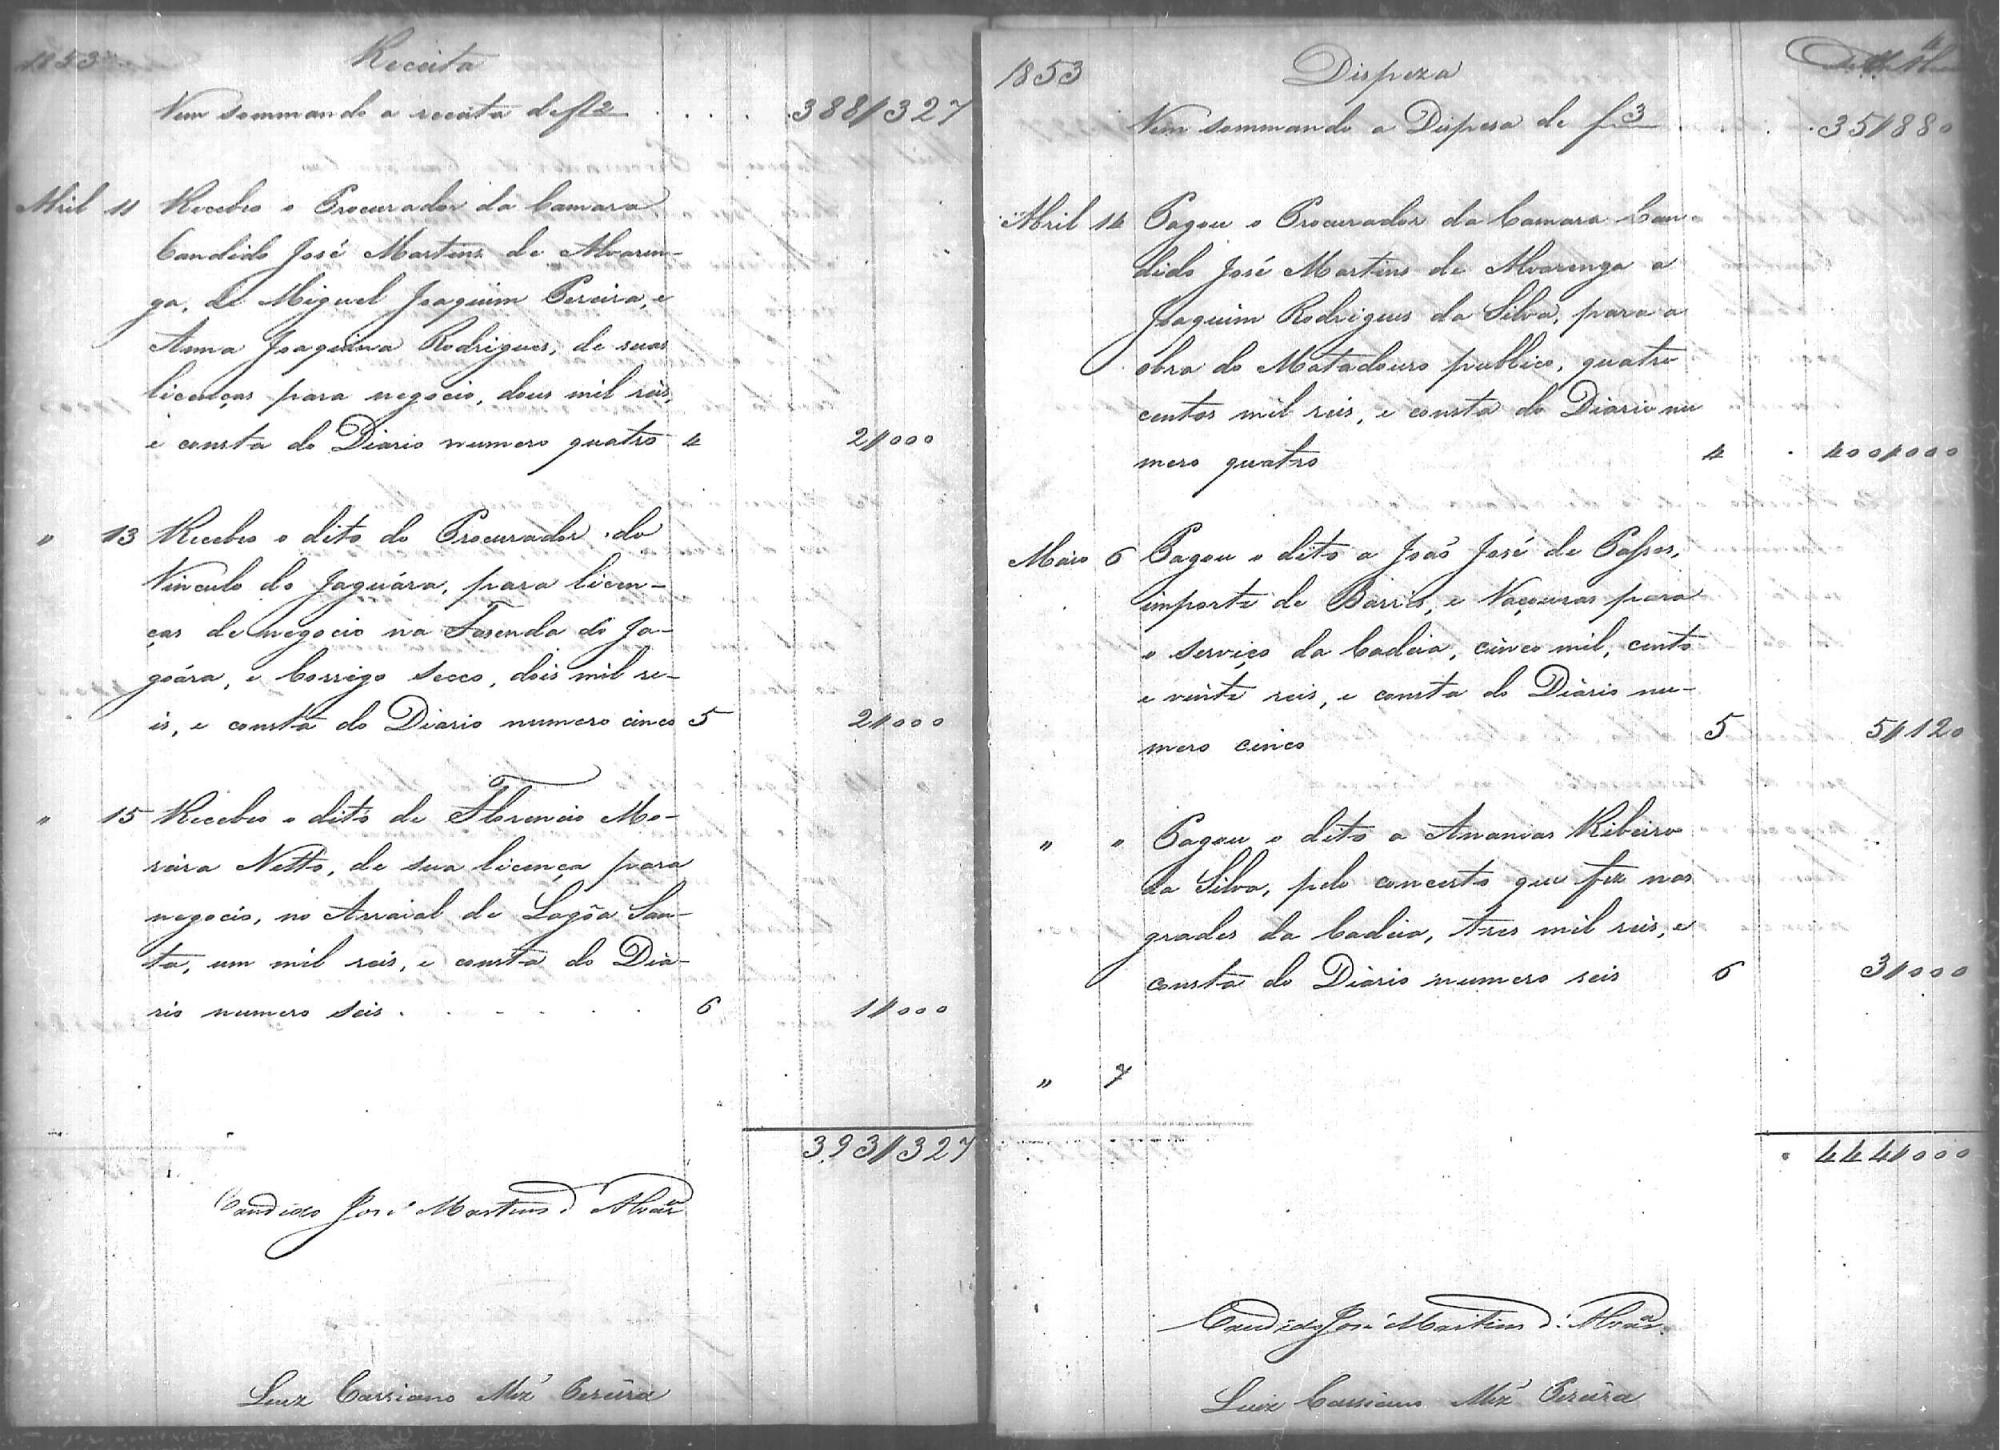 1853
Receita
Vem sommando a receita de f 2 . . . . 388//327
Abril 11 Recebeo o Procurador da Camara
Candido José Martins de Alvaren-
ga, de Miguel Joaquim Pereira, e
Anna Joaquina Rodrigues, de suas
licenças para negocio, dous mil reis,
e consta do Diario numero quatro 4 2//000
" 13 Recebeo o dito do Procurador do
Vinculo do Jaguára, para licen-
ças de negocio na Fasenda do Ja-
goára, e Corrego secco, dois mil re-
is, e consta do Diario numero cinco 5 2//000
" 15 Recebeo o dito de Florencio Mo-
reira Netto, de sua licença para
negocio, no Arraial de Lagôa San-
ta, um mil reis, e consta do Dia-
rio numero seis . . . . . . 6 1//000
393//327
Candido José Martins d' Alvª
Luiz Cassiano Miz' Pereira
4
1853
Dispeza
Vem sommando a Dispesa de f 3 . . . . 35//880
Abril 14 Pagou o Procurador da Camara Can-
dido José Martins de Alvarenga a
Joaquim Rodrigues da Silva, para a
obra do Matadouro publico, quatro
centos mil reis, e consta do Diario nu
mero quatro 4 400//000
Maio 6 Pagou o dito a João José de Passos,
importe de Barris, e Vaçouras para
o serviço da Cadeia, cinco mil, cento
e vinte reis, e consta do Diario nu-
mero cinco 5 5//120
" " Pagou o dito a Ananias Ribeiro
da Silva, pelo concerto que fez nas
grades da Cadeia, tres mil reis, e
consta do Diario numero seis 6 3//000
" 7
444//000
Candido José Martins d' Alvª
Luiz Cassiano Miz' Pereira